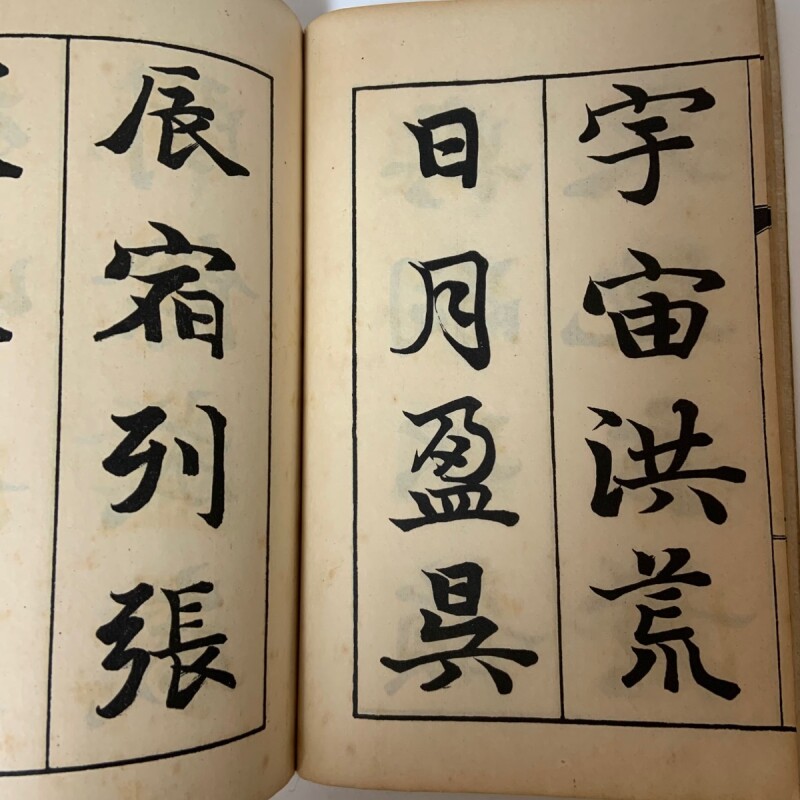 宇宙洪荒
日月盈昃
辰宿列張